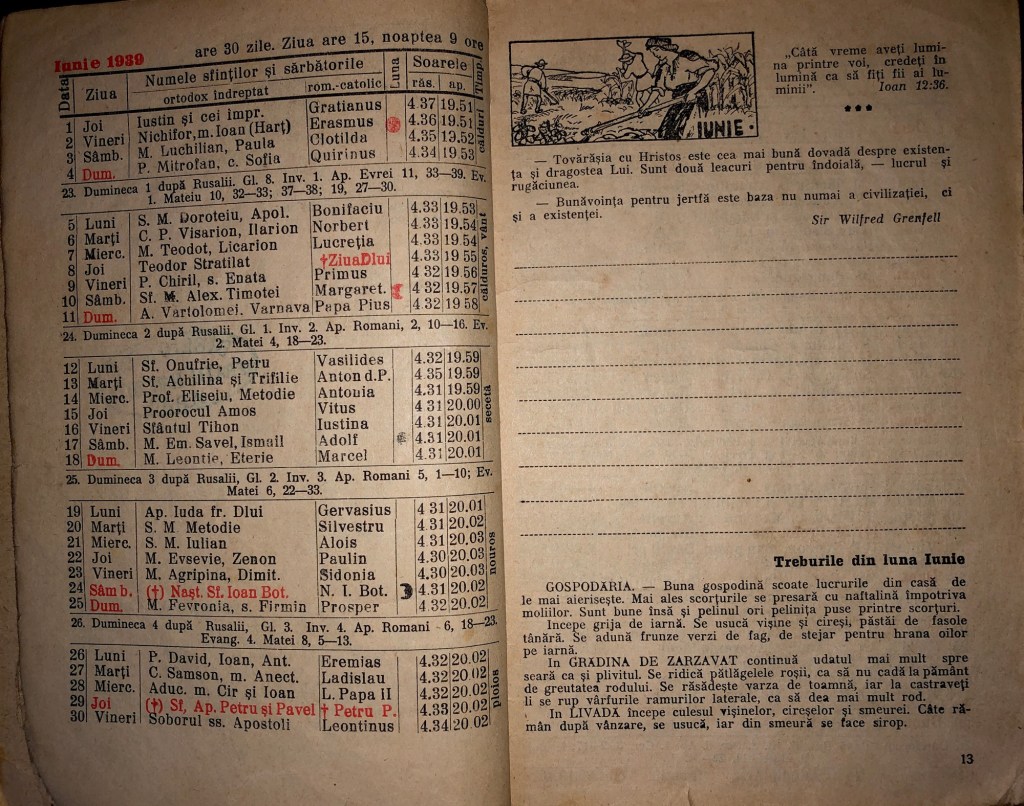 Iunie 1939 are 30 zile. Ziua are 15, noaptea 9 ore
Data Ziua Numele sfinților și sărbătorile Luna Soarele Timp
ortodox îndreptat rom.-catolic răs. ap.
1 Joi Iustin și cei impr. Gratianus 4 37 19.51
2 Vineri Nichifor, m. Ioan (Harț) Erasmus 4.36 19.51
3 Sâmb. M. Luchilian, Paula Clotilda 4.35 19.52
4 Dum. P. Mitrofan, c. Sofia Quirinus 4.34 19.53
călduri
23. Dumineca 1 după Rusalii. Gl. 8. Inv. 1. Ap. Evrei 11, 33—39. Ev.
1. Mateiu 10, 32—33; 37—38; 19, 27—30.
5 Luni S. M. Doroteiu, Apol. Bonifaciu 4.33 19.53
6 Marți C. P. Visarion, Ilarion Norbert 4.33 19.54
7 Mierc. M. Teodot, Licarion Lucreția 4.33 19.54
8 Joi Teodor Stratilat †Ziua Dlui 4.33 19 55
9 Vineri P. Chiril, s. Enata Primus 4 32 19.56
10 Sâmb. Sf. M. Alex. Timotei Margaret. 4 32 19.57
11 Dum. A. Vartolomei. Varnava Papa Pius 4 32 19 58
călduros, vânt
24. Dumineca 2 după Rusalii. Gl. 1. Inv. 2. Ap. Romani, 2, 10—16. Ev.
2. Matei 4, 18—23.
12 Luni Sf. Onufrie, Petru Vasilides 4.32 19.59
13 Marți Sf. Achilina și Trifilie Anton d.P. 4.35 19.59
14 Mierc. Prof. Eliseiu, Metodie Antonia 4.31 19.59
15 Joi Proorocul Amos Vitus 4 31 20.00
16 Vineri Sfântul Tihon Iustina 4.31 20.01
17 Sâmb. M. Em. Savel, Ismail Adolf 4.31 20.01
18 Dum. M. Leontie, Eterie Marcel 4.31 20.01
secetă
25. Dumineca 3 după Rusalii, Gl. 2. Inv. 3. Ap. Romani 5, 1—10; Ev.
Matei 6, 22—33.
19 Luni Ap. Iuda fr. Dlui Gervasius 4 31 20.01
20 Marți S. M. Metodie Silvestru 4 31 20.02
21 Mierc. S. M. Iulian Alois 4 31 20.03
22 Joi M. Evsevie, Zenon Paulin 4.30 20.03
23 Vineri M. Agripina, Dimit. Sidonia 4.30 20.03
24 Sâmb. (†) Nașt. Sf. Ioan Bot. N. I. Bot. 4.31 20.02
25 Dum. M. Fevronia, s. Firmin Prosper 4.32 20.02
nouros
26. Dumineca 4 după Rusalii, Gl. 3. Inv. 4. Ap. Romani 6, 18—23.
Evang. 4. Matei 8, 5—13.
26 Luni P. David, Ioan, Ant. Eremias 4.32 20.02
27 Marți C. Samson, m. Anect. Ladislau 4.32 20.02
28 Mierc. Aduc. m. Cir și Ioan L. Papa II 4.32 20.02
29 Joi (†) Sf, Ap. Petru și Pavel † Petru P. 4.33 20.02
30 Vineri Soborul ss. Apostoli Leontinus 4.34 20.02
ploios
IUNIE
„Câtă vreme aveți lumi-
na printre voi, credeți în
lumină ca să fiți fii ai lu-
minii”. Ioan 12:36.
***
— Tovărășia cu Hristos este cea mai bună dovadă despre existen-
ța și dragostea Lui. Sunt două leacuri pentru îndoială, — lucrul și
rugăciunea.
— Bunăvoința pentru jertfă este baza nu numai a civilizației, ci
și a existenței.
Sir Wilfred Grenfell
Treburile din luna Iunie
GOSPODARIA. — Buna gospodină scoate lucrurile din casă de
le mai aierisește. Mai ales scorțurile se presară cu naftalină împotriva
moliilor. Sunt bune însă și pelinul ori pelinița puse printre scorțuri.
Incepe grija de iarnă. Se usucă vișine și cireși, păstăi de fasole
tânără. Se adună frunze verzi de fag, de stejar pentru hrana oilor
pe iarnă.
In GRADINA DE ZARZAVAT continuă udatul mai mult spre
seară ca și plivitul. Se ridică pătlăgelele roșii, ca să nu cadă la pământ
de greutatea rodului. Se răsădește varza de toamnă, iar la castraveți
li se rup vârfurile ramurilor laterale, ca să dea mai mult rod.
In LIVADĂ începe culesul vișinelor, cireșelor și smeurei. Câte ră-
mân după vânzare, se usucă, iar din smeură se face sirop.
13